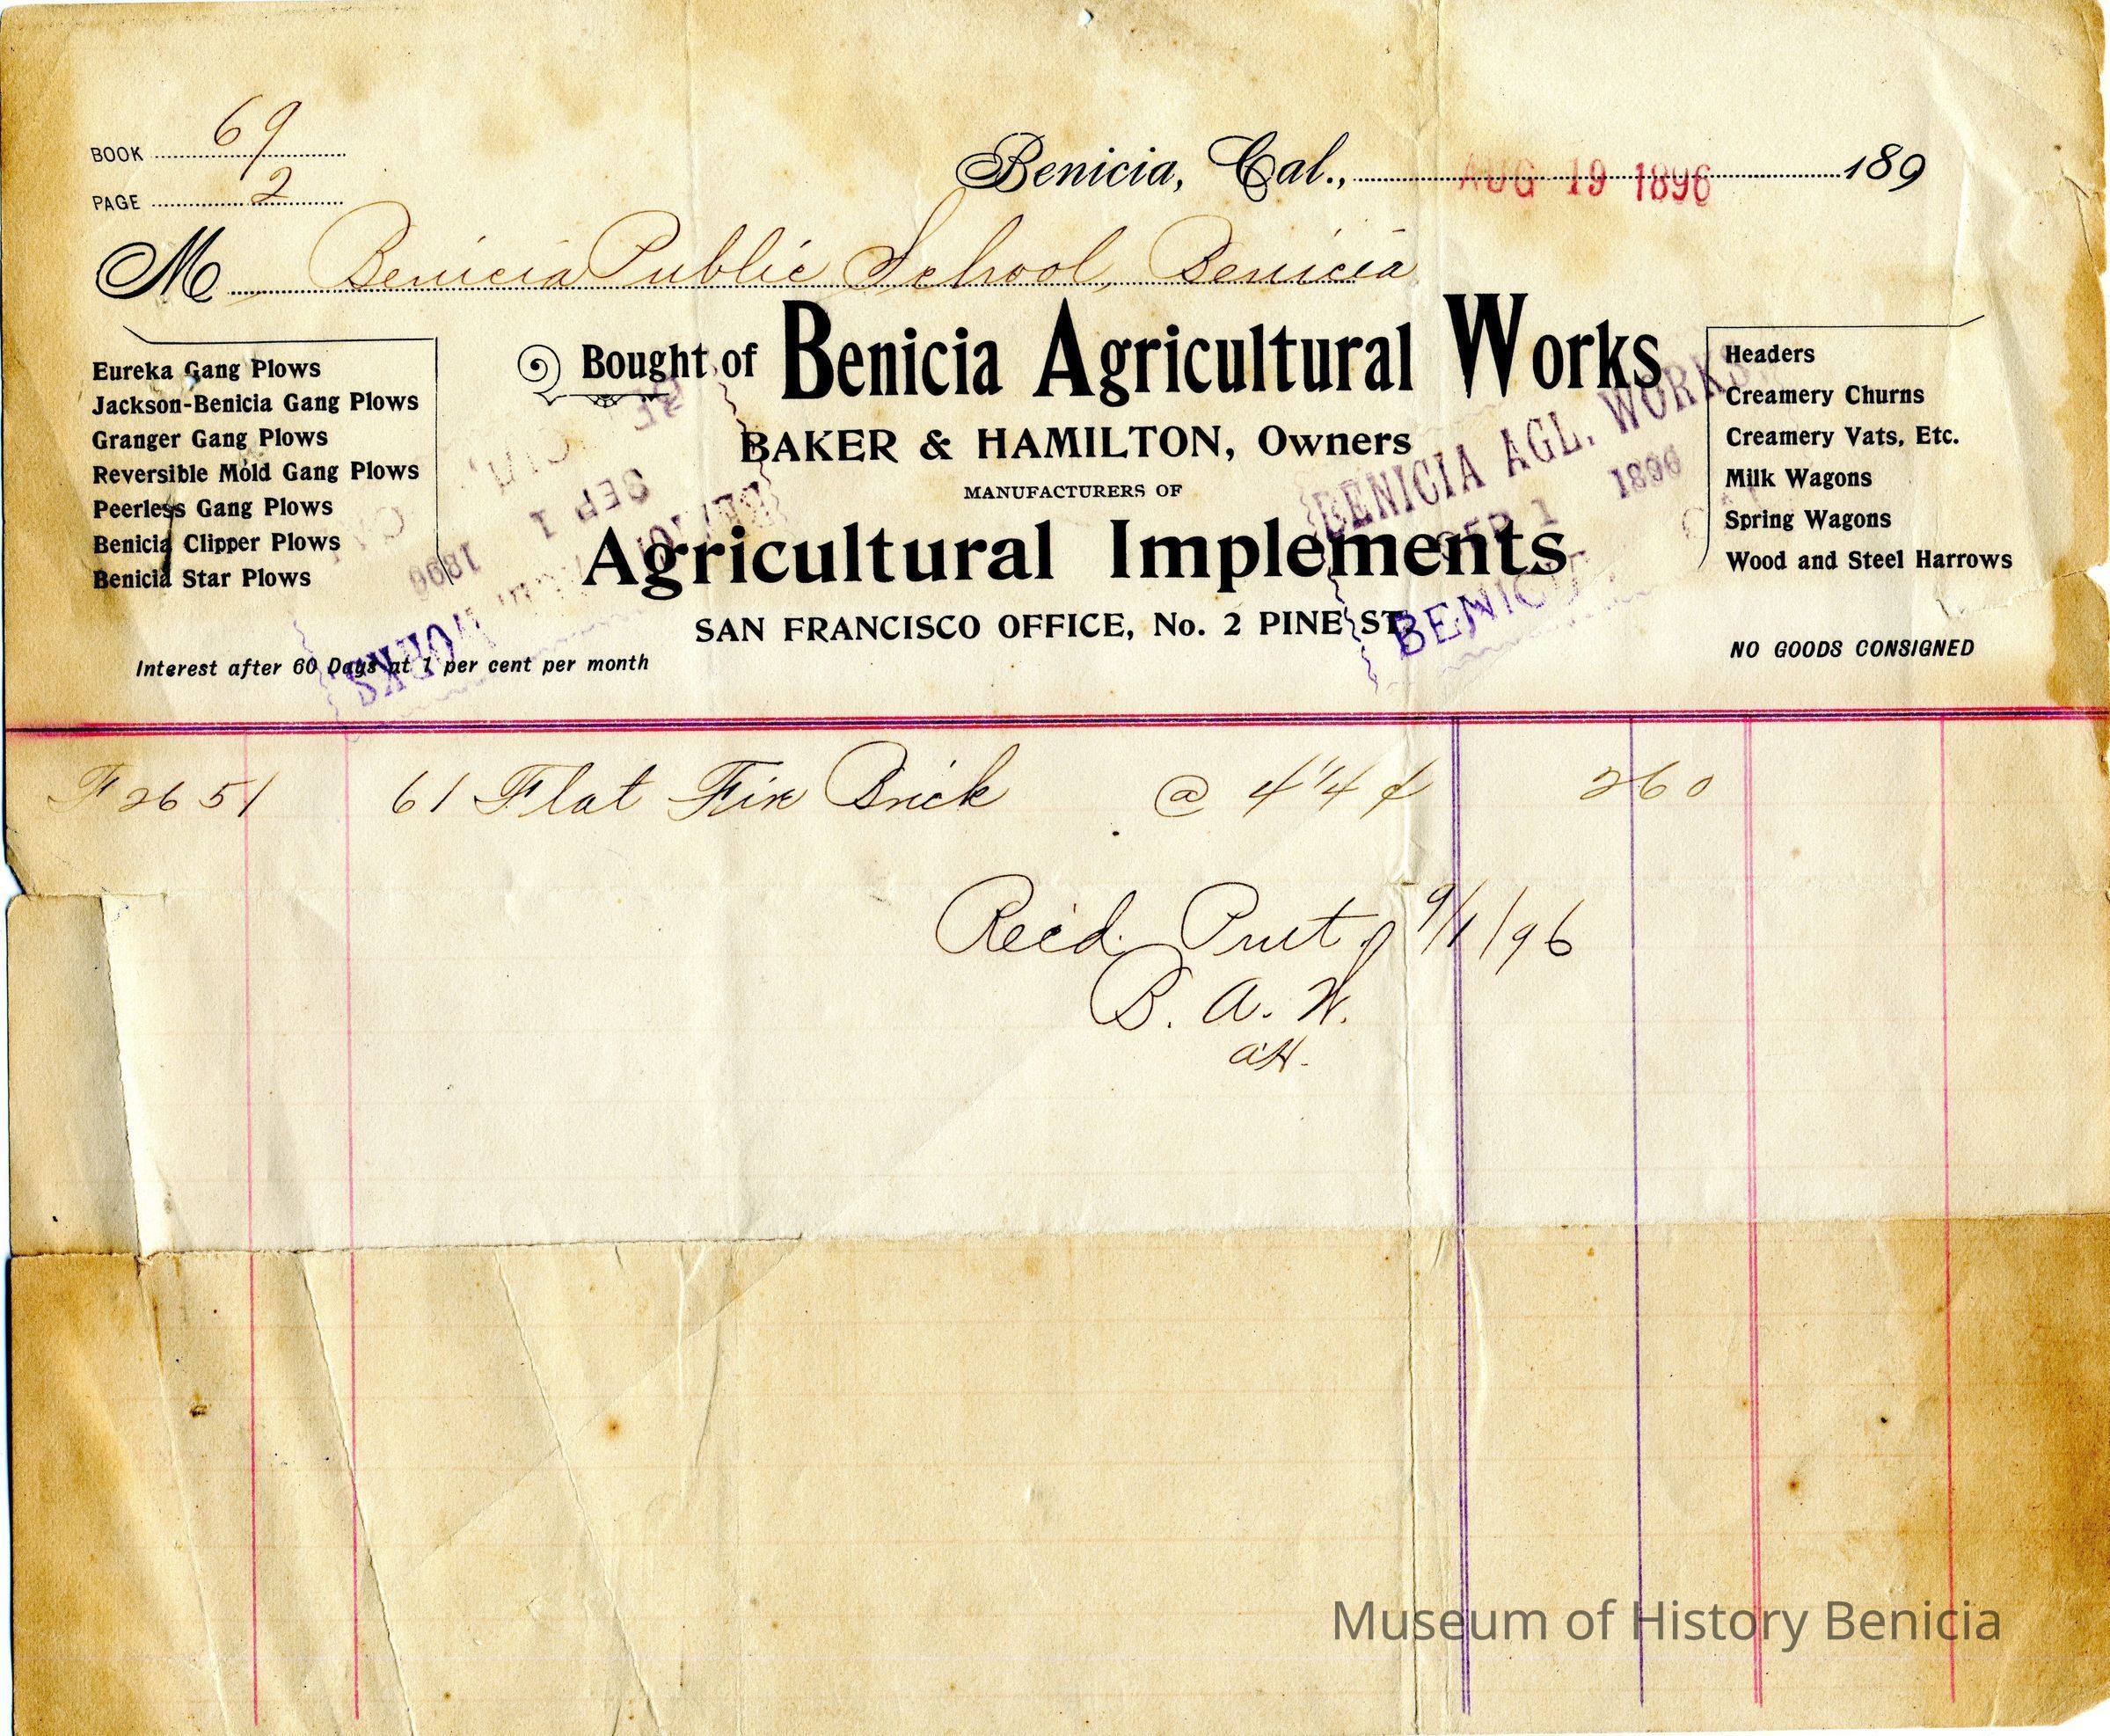 BOOK 69
PAGE 2
Benicia, Cal., AUG 19 1896 189
M Benicia Public School, Benicia
Eureka Gang Plows
Jackson-Benicia Gang Plows
Granger Gang Plows
Reversible Mold Gang Plows
Peerless Gang Plows
Benicia Clipper Plows
Benicia Star Plows
Bought of Benicia Agricultural Works
BAKER & HAMILTON, Owners
MANUFACTURERS OF
Agricultural Implements
SAN FRANCISCO OFFICE, No. 2 PINE ST.
Headers
Creamery Churns
Creamery Vats, Etc.
Milk Wagons
Spring Wagons
Wood and Steel Harrows
BENICIA AGL. WORKS
SEP 1 1896
Interest after 60 Days at 1 per cent per month
NO GOODS CONSIGNED
F 2651 61 Flat Fire Brick @ 260
Recd. 9/1/96
B. A. W.
Museum of History Benicia